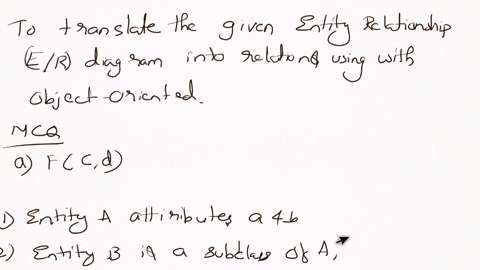 To translate the given Entity Relationship
(E/R) diagram into relations using with
object-oriented.
MCQ
a) F(C,d)
1) Entity A attributes a & b
2) Entity B is a subclass of A,